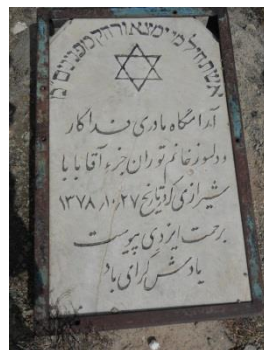 אשת חיל מי ימצא ורחק מפנינים מ
آرامگاه مادری فداکار
و دلسوز خانم توران
آقابابا
شیرازی که تاریخ ۱۳۷۸٫۱۰٫۲۷
برحمت ایزدی پیوست
یادش گرامی باد